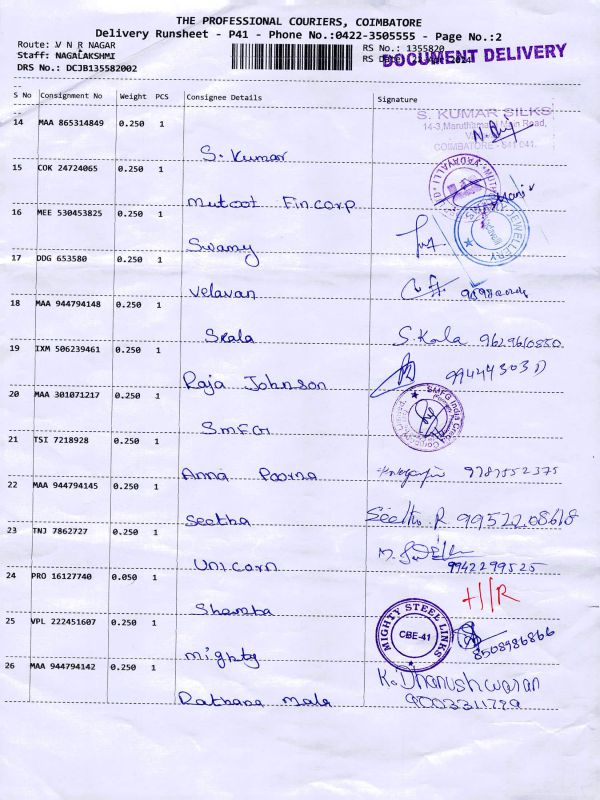 THE PROFESSIONAL COURIERS, COIMBATORE
Delivery Runsheet - P41 - Phone No.:0422-3505555 - Page No.:2
Route: V N R NAGAR
RS No.: 1355820
Staff: NAGALAKSHMI
RS Date:
DOCUMENT DELIVERY
DRS No.: DCJB135582002
S No Consignment No Weight PCS Consignee Details Signature
14 MAA 865314849 0.250 1
S. KUMAR SILKS
14-3, Maruthamalai Main Road,
COIMBATORE - 641 041.
S. Kumar
15 COK 24724065 0.250 1
Mutoot Fincorp Mani
16 MEE 530453825 0.250 1
JEWELLERY
Swamy
17 DDG 653580 0.250 1
Velavan
18 MAA 944794148 0.250 1
Skala S. Kala 9629610880
19 IXM 506239461 0.250 1
Raja Johnson
20 MAA 301071217 0.250 1
SMFG India Credit
SMFG
21 TSI 7218928 0.250 1
Anna Poorna 9787552375
22 MAA 944794145 0.250 1
Seetha Seetha R 9952208618
23 TNJ 7862727 0.250 1
Unicorn 9942299525
24 PRO 16127740 0.050 1
Shamba
25 VPL 222451607 0.250 1
MIGHTY STEEL LINKS
CBE-41
mighty 8508986866
26 MAA 944794142 0.250 1
K. Dhanushwaran
Rathana mala 9003311799